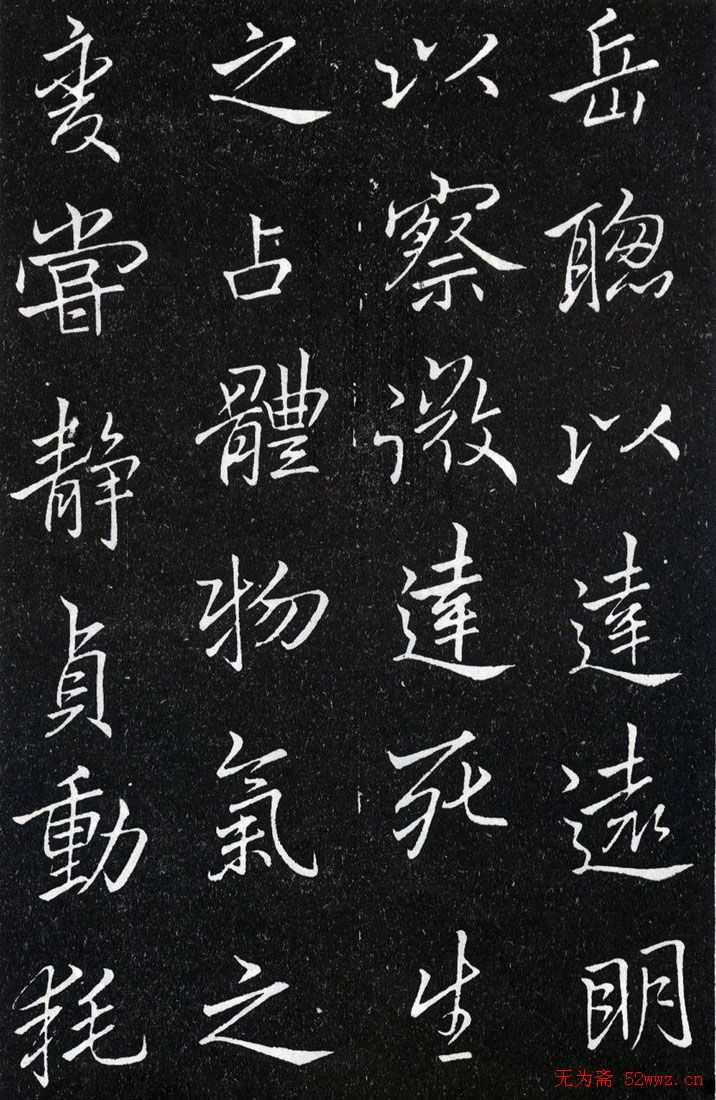 岳聦以達遠明
以察微達死生
之占體物氣之
変甞静貞動耗
无为斋 52wwz.cn